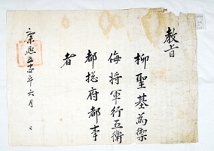 教旨
柳聖基為禦
侮將軍行五衛
都摠府都事
者
康熙五十年六月  日